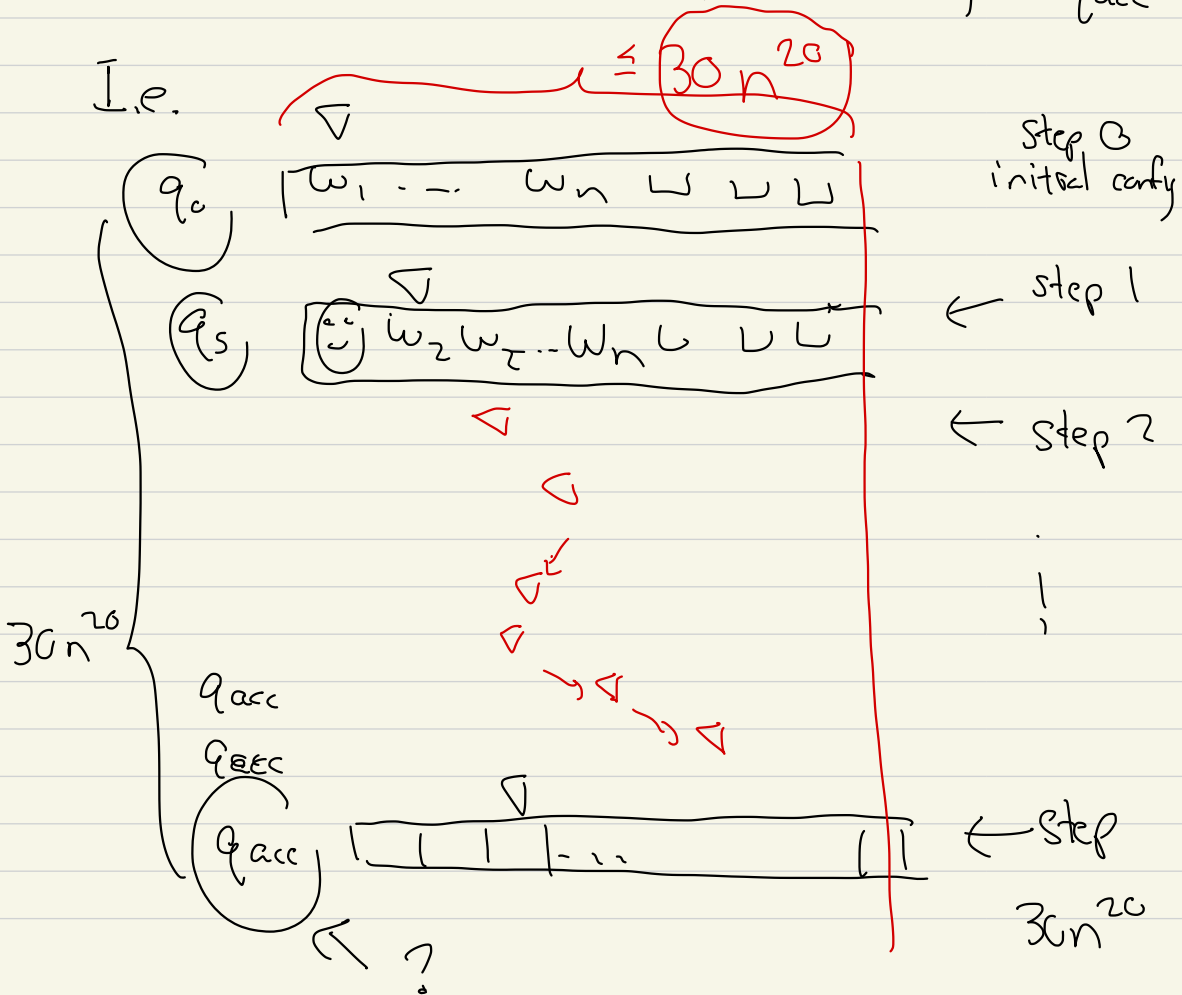 qacc
≤ 30 n^20
I.e.
Step 0
initial config
q₀ w₁ . -. wₙ ⊔ ⊔ ⊔
step 1
q₅ w₂ w₂ .. wₙ ⊔ ⊔ ⊔
step 2
30n^20
qacc
qacc
qacc - . . .
step
30n^20
?